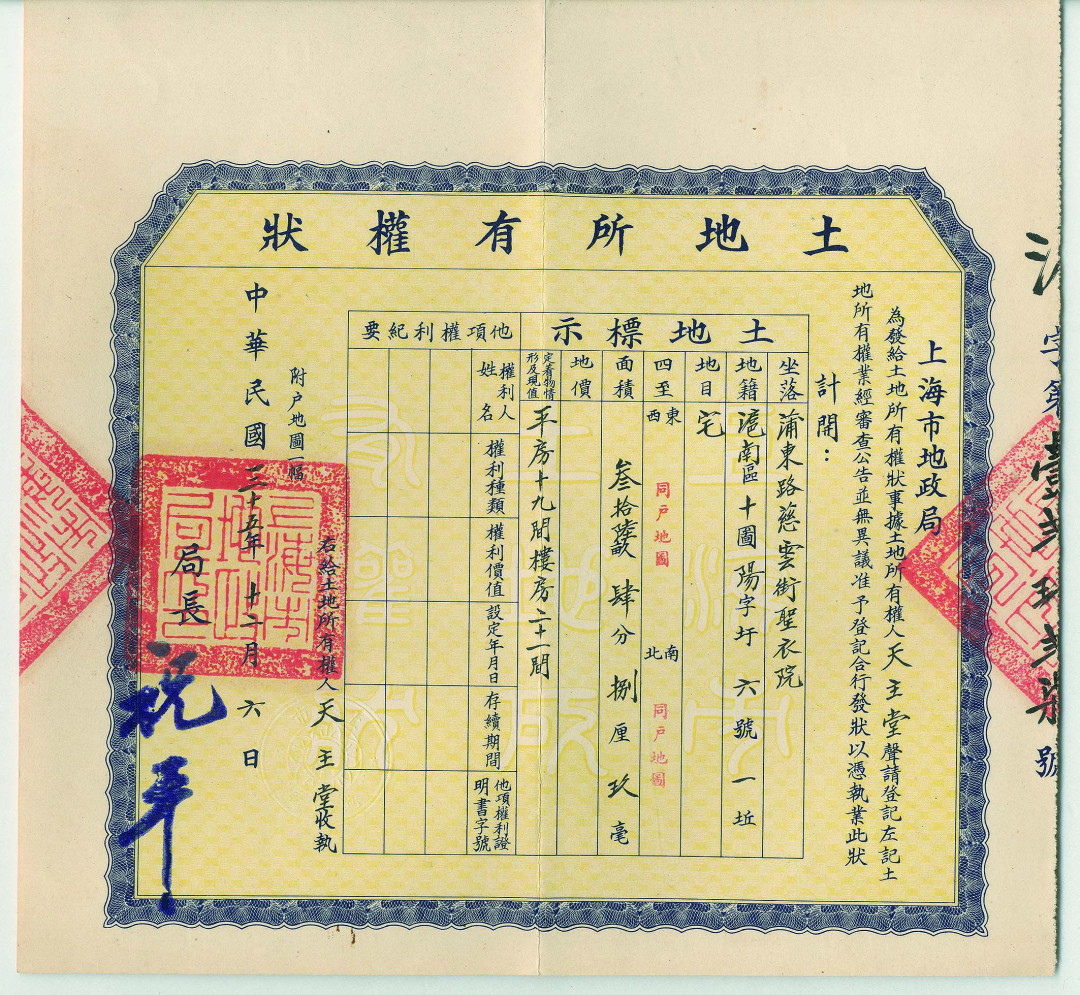 土地所有權狀
上海市地政局
為發給土地所有權狀事據土地所有權人天主堂聲請登記左記土
地所有權業經審查公告並無異議准予登記合行發狀以憑執業此狀
計開：
土地標示
坐落 蒲東路慈雲街聖衣院
地籍 滬南區十圖陽字圩六號一坵
地目 宅
四至 東 西 同戶地圖 南 北 同戶地圖
面積 叁拾陸畝肆分捌厘玖毫
地價
定着物情形及現值 平房十九間樓房二十一間
他項權利紀要
權利人姓名
權利種類
權利價值
設定年月日
存續期間
他項權利證明書字號
右給土地所有權人天主堂收執
附戶地圖一幅
中華民國三十五年十二月六日
局長
祝平
上海市地政局
字第
號